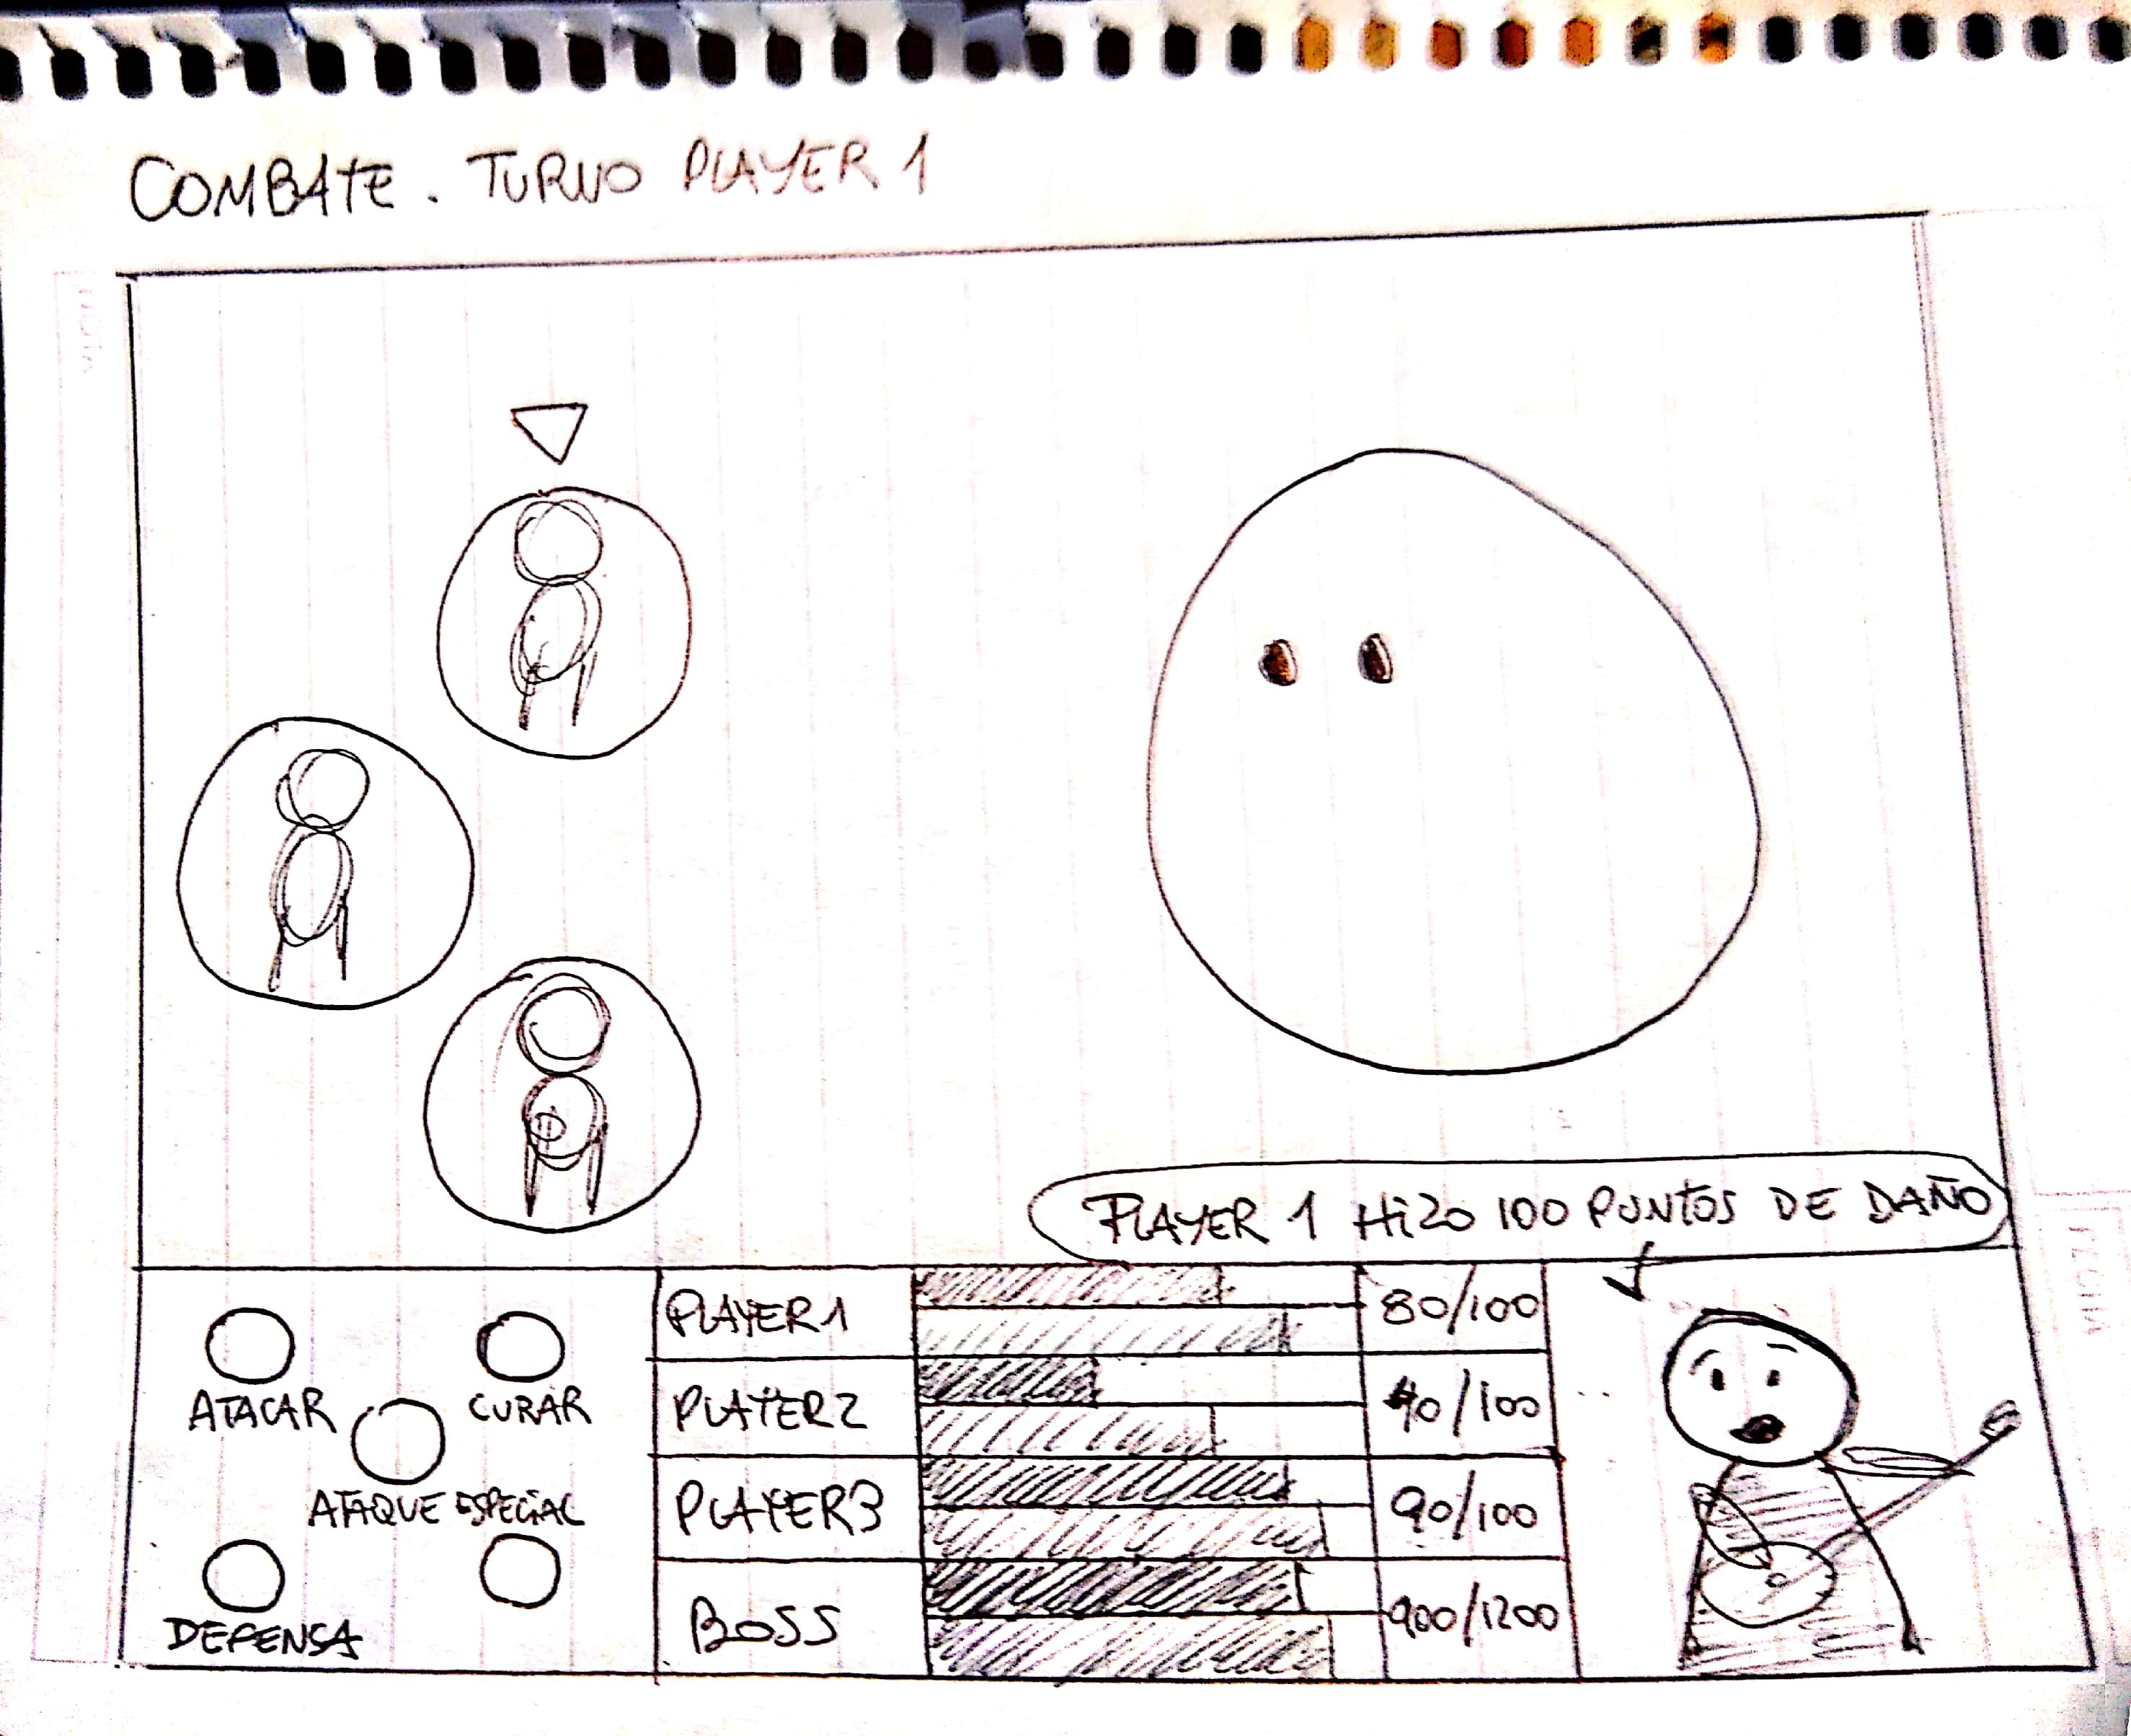 COMBATE. TURNO PLAYER 1
PLAYER 1 HiZO 100 PUNTOS DE DAÑO
ATACAR
CURAR
ATAQUE ESPECiAL
DEFENSA
PLAYER1
80/100
PLAYER2
40/100
PLAYER3
90/100
BOSS
900/1200